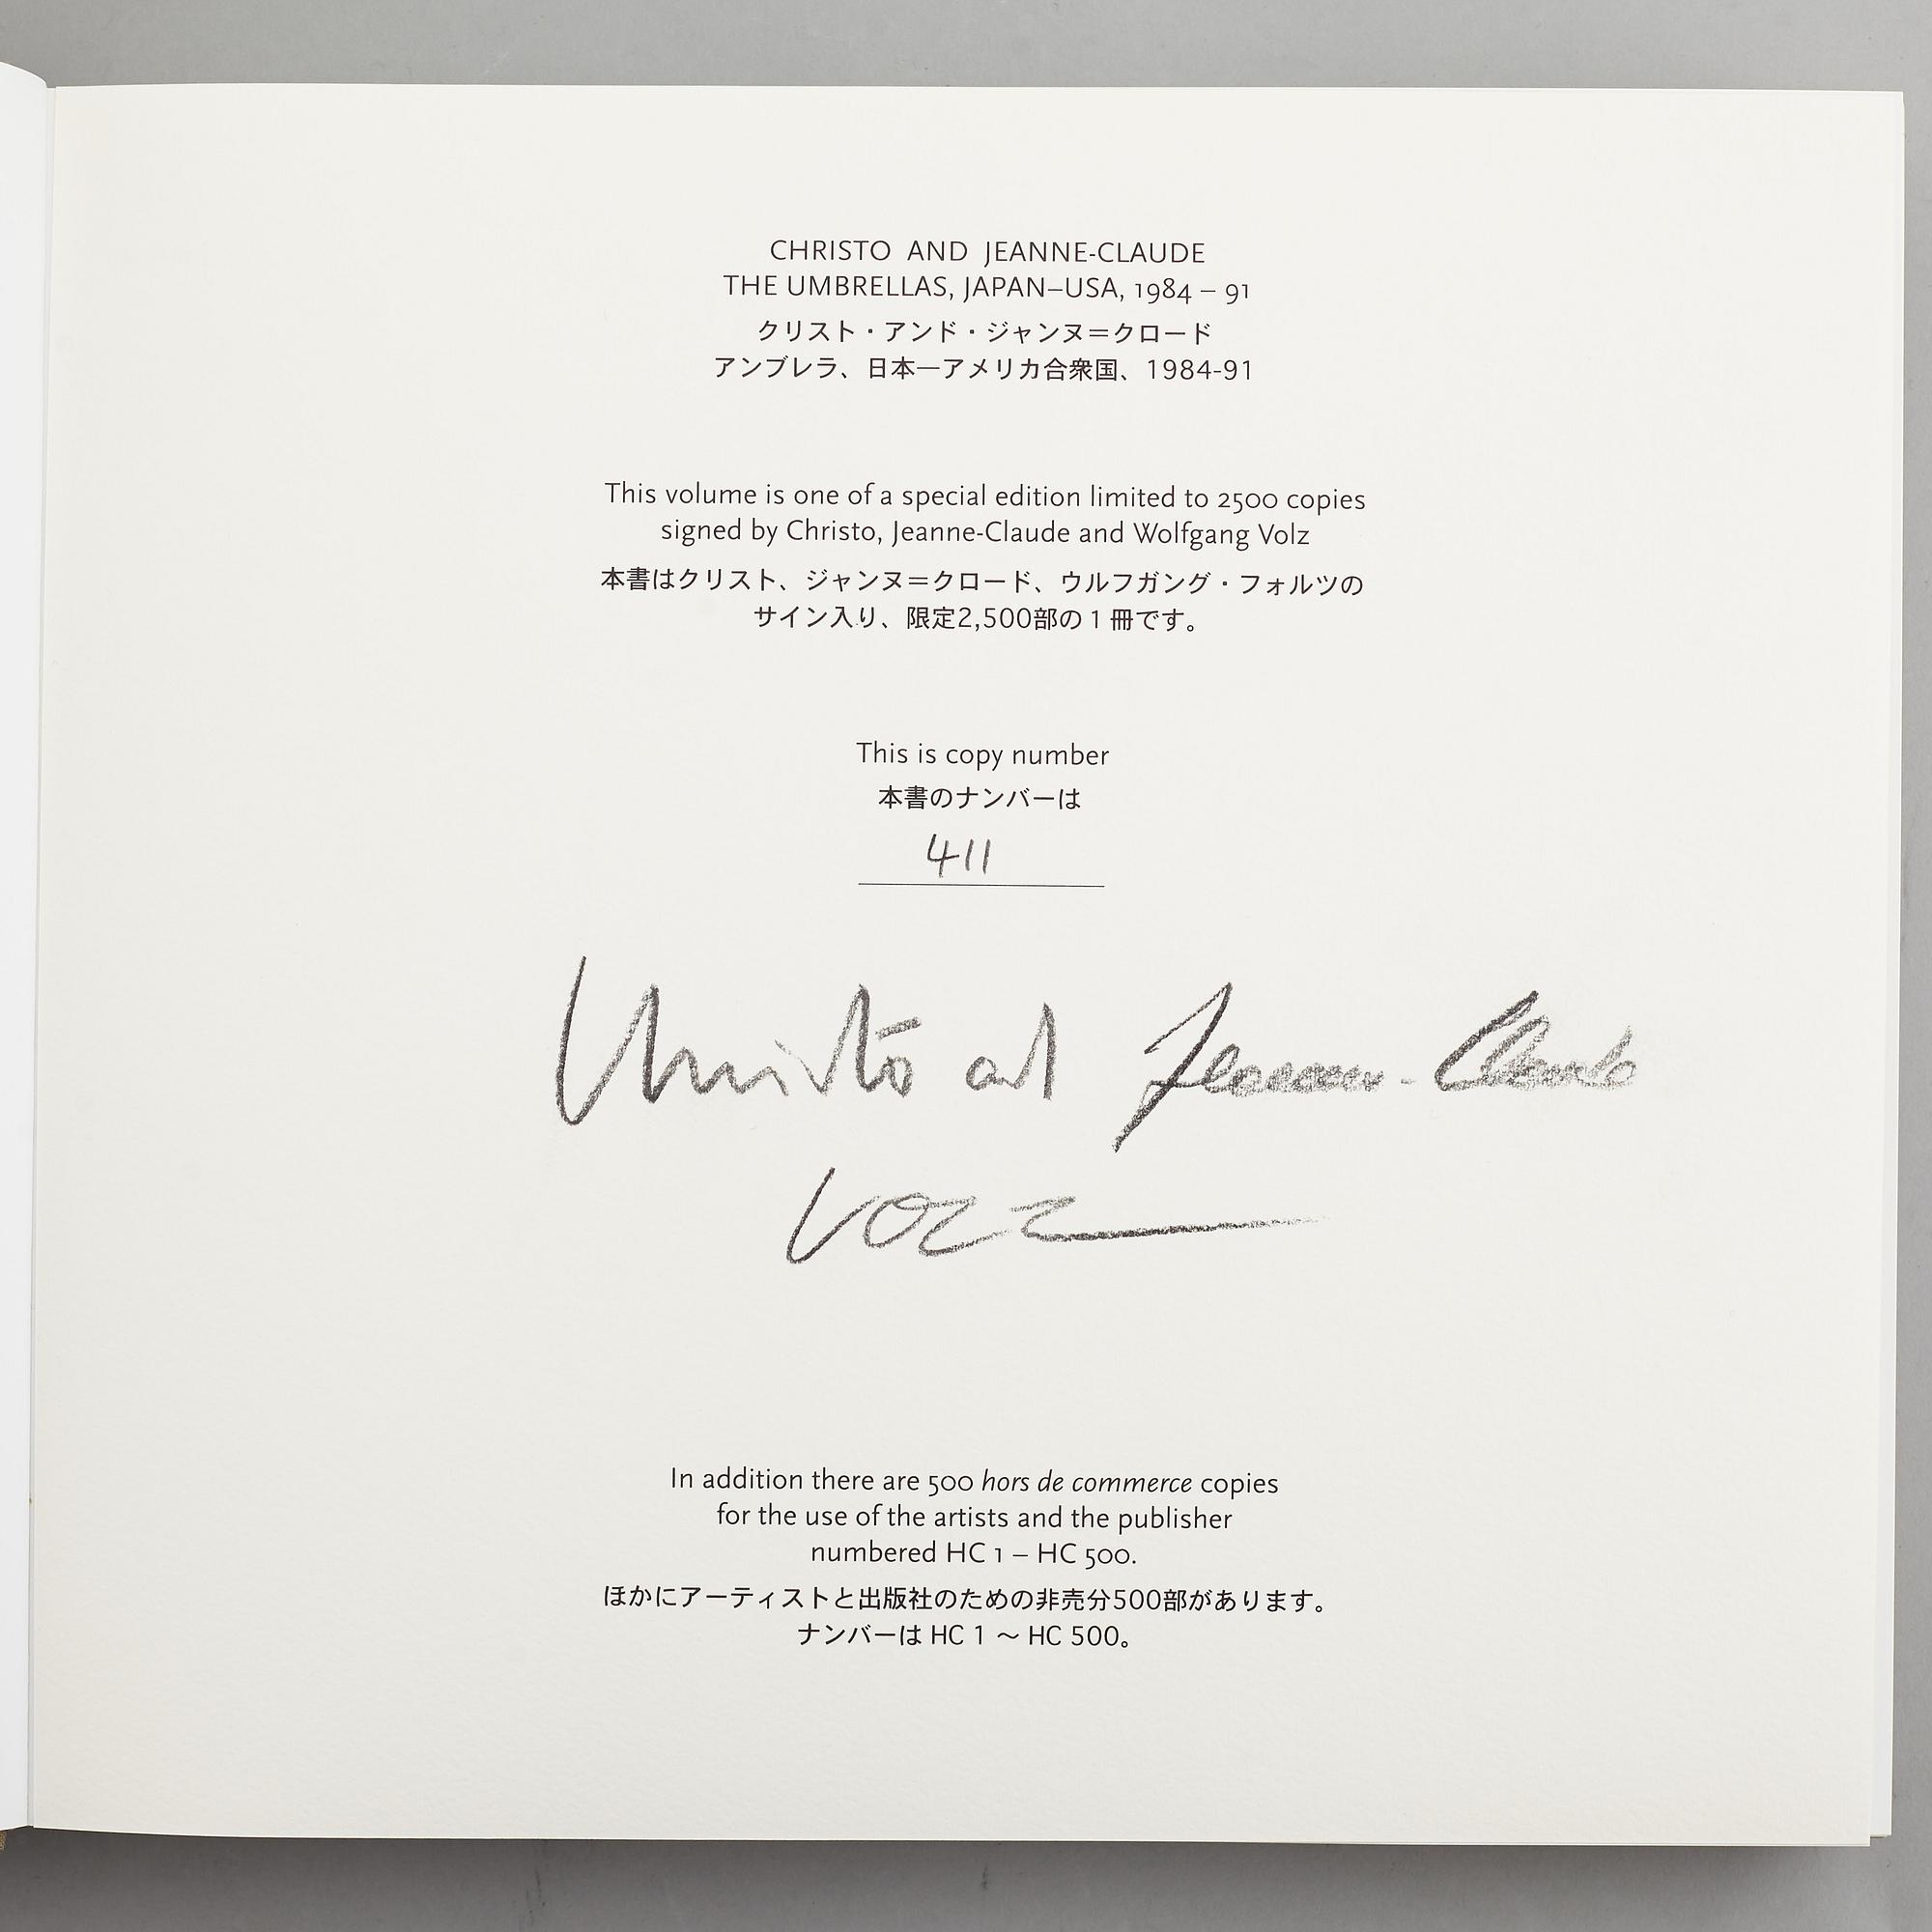 CHRISTO AND JEANNE-CLAUDE
THE UMBRELLAS, JAPAN–USA, 1984 – 91
クリスト・アンド・ジャンヌ＝クロード
アンブレラ、日本―アメリカ合衆国、1984-91
This volume is one of a special edition limited to 2500 copies
signed by Christo, Jeanne-Claude and Wolfgang Volz
本書はクリスト、ジャンヌ＝クロード、ウルフガング・フォルツの
サイン入り、限定2,500部の1冊です。
This is copy number
本書のナンバーは
411
Christo and Jeanne-Claude
VOLZ
In addition there are 500 hors de commerce copies
for the use of the artists and the publisher
numbered HC 1 – HC 500.
ほかにアーティストと出版社のための非売分500部があります。
ナンバーは HC 1 ～ HC 500。